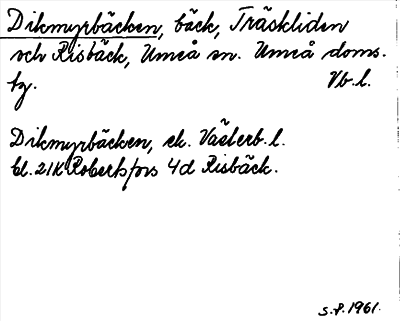 Dikmyrbäcken, bäck, Träskliden
och Risbäck, Umeå sn. Umeå doms.
tg. Vb. l.
Dikmyrbäcken, ek. Västerb. l.
bl. 21K Robertsfors 4d Risbäck.
S.P. 1961.